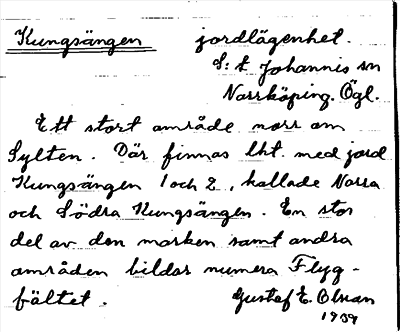 Kungsängen jordlägenhet.
S:t Johannis sn
Norrköping. Ögl.
Ett stort område norr om
Sylten. Där finnas lht. med jord
Kungsängen 1 och 2, kallade Norra
och Södra Kungsängen. En stor
del av den marken samt andra
områden bildar numera Flyg-
fältet. Gustaf E. Olsson
1939